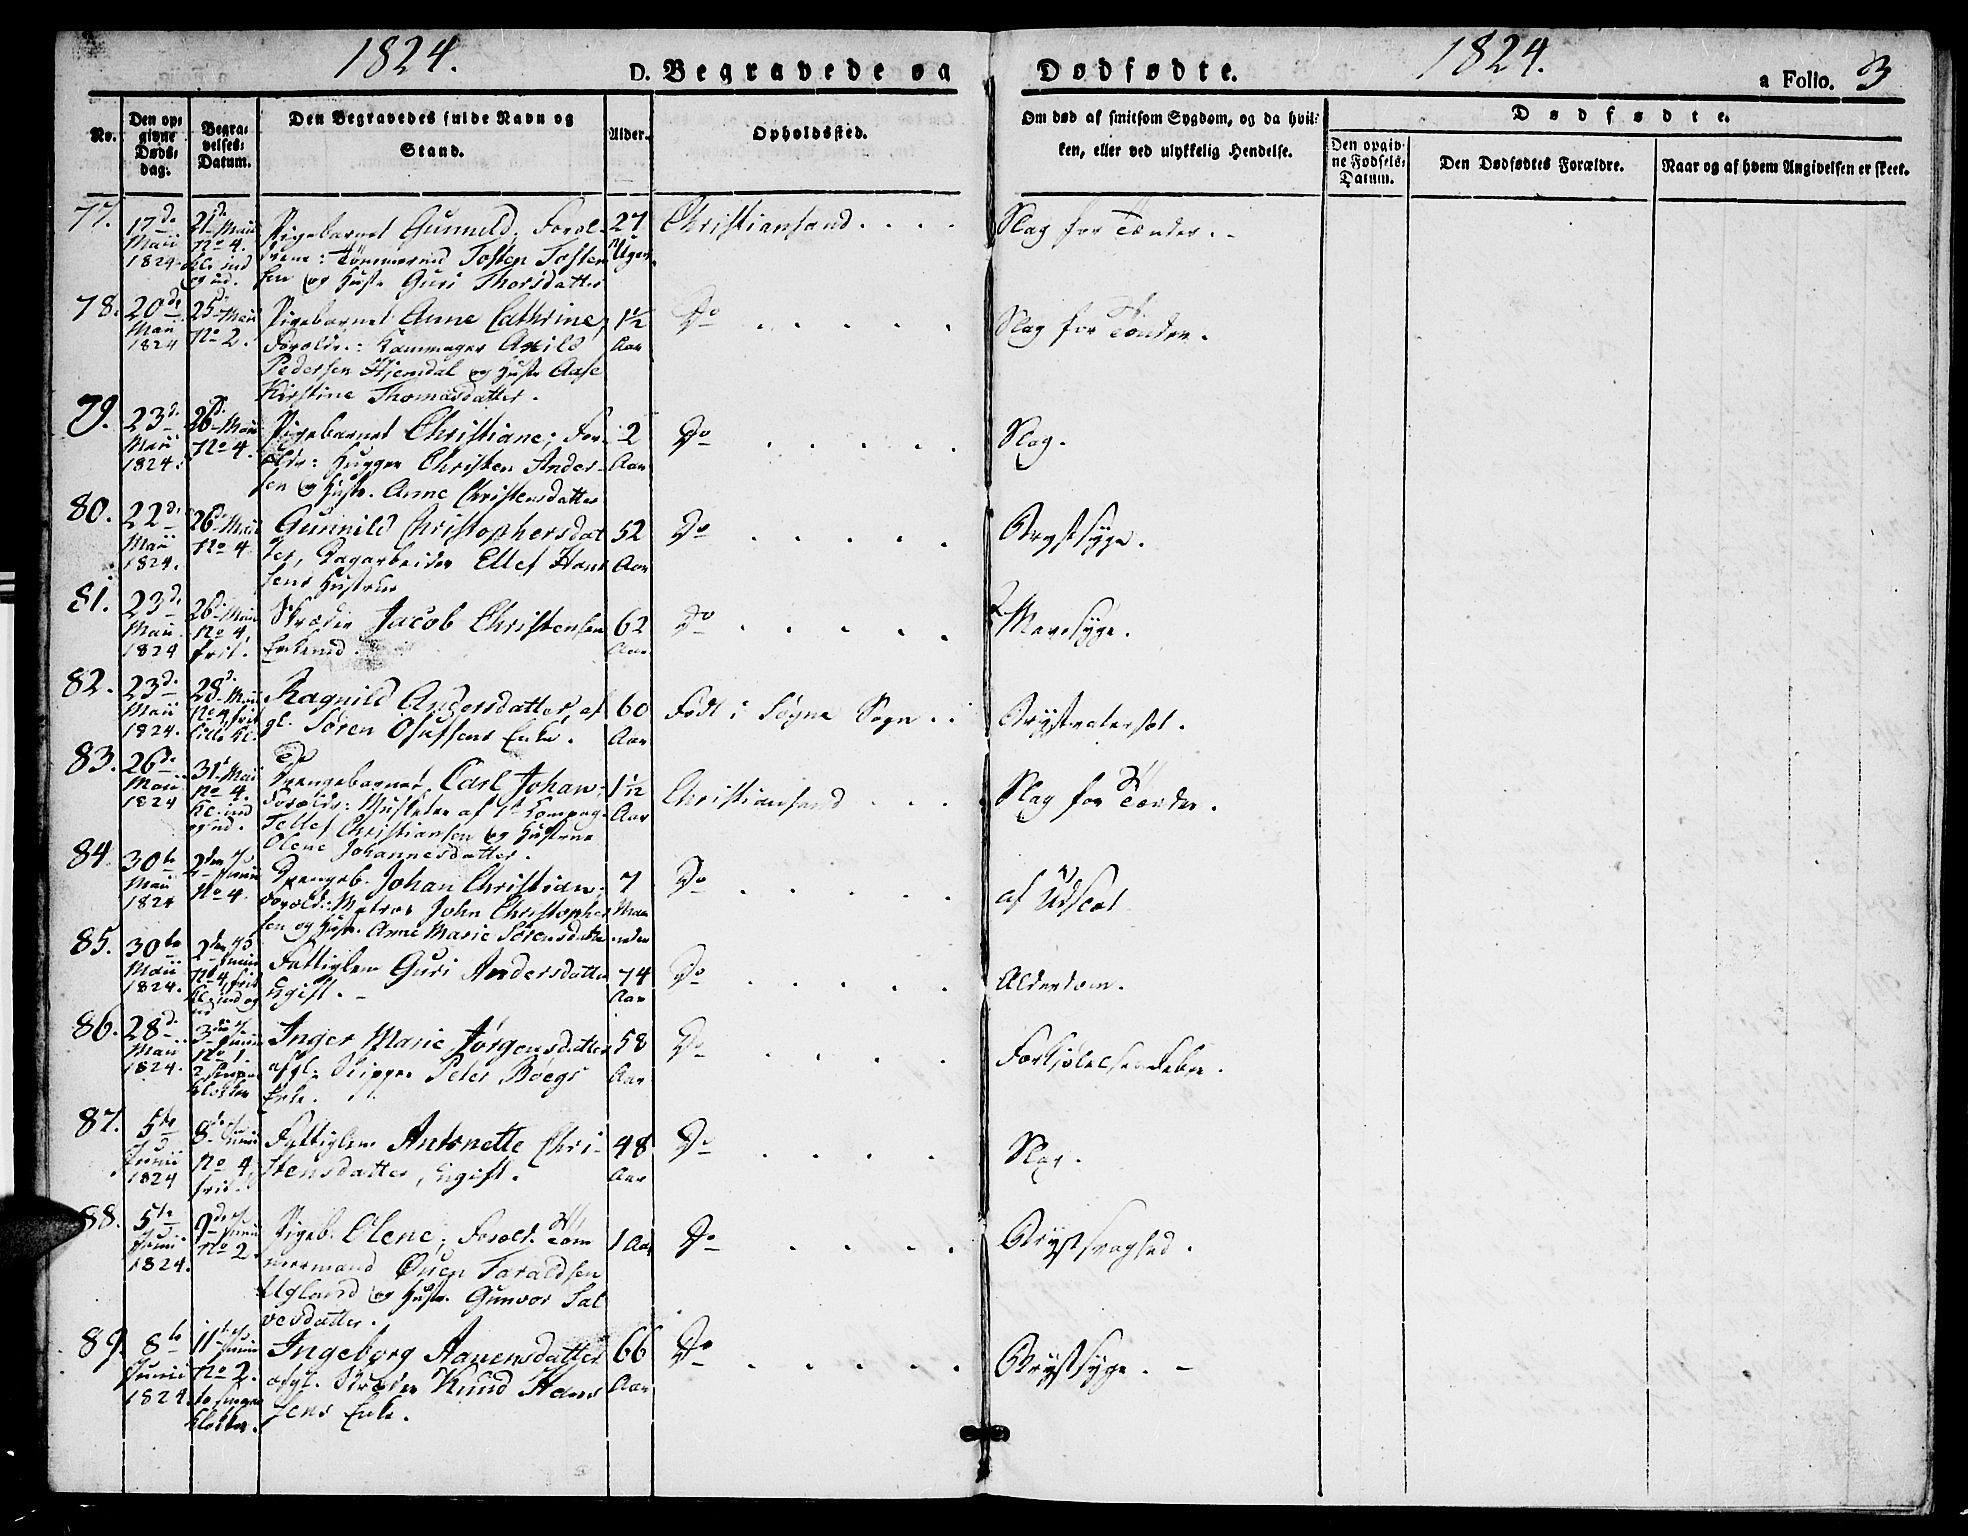 1824.
D. Begravede og
Dødfødte.
1824.
a Folio. 3
No.
Den opgivne Dødsdag.
Begravelses-Datum.
Den Begravedes fulde Navn og Stand.
Alder.
Opholdssted.
Om død af smitsom Sygdom, og da hvilken, eller ved ulykkelig Hendelse.
Dødfødte.
Den opgivne Fødsels-Datum.
Den Dødfødtes Forældre.
Naar og af hvem Angivelsen er skeet.
77.
17de Maii 1824.
21de Maii No 4. Kl. ind og ud.
Pigebarnet Gunnild; Foræl-
drene: Tømmermd Tosten Tosten-
sen og Hustr Guri Thorsdatter
27 Uger.
Christiansand . . . .
Slag for Tænder.
78.
20de Maii 1824
25de Maii No 2.
Pigebarnet Anne Cathrine,
Forældr.: Kammager Axild
Pedersen Hjemdal og Hustr Aase
Kirstine Thomasdatter.
1½ Aar
Do . . . . .
Slag for Tænder.
79.
23de Maii 1824.
26de Maii No 4.
Pigebarnet Christiane; For-
ældr: Hugger Christen Ander-
sen og Hustr. Anne Christensdatter
2 Aar
Do . . . . .
Slag.
80.
22de Maii 1824.
26de Maii No 4.
Gunnild Christophersdat-
ter, Dagarbeider Ellef Han-
sens Hustrue
52 Aar
Do . . . . .
Brystsyge.
81.
23de Maii 1824
26de Maii No 4, frit.
Skræder Jacob Christensen
Enkemd.
62 Aar
Do . . . . .
Mavesyge.
82.
23de Maii 1824.
28de Maii No 4, frit lille Kl.
Ragnild Andersdatter, af-
gl. Søren Olufsens Enke.
60 Aar
Født i Søgne Sogn . .
83.
26de Maii 1824
31te Maii No 4. Kl. ind og ud.
Drengebarnet Carl Johan,
Forældr: Musketer af 1ste Compag.
Tellef Christiansen og Hustrue
Olene Johannesdatter.
Aar
Christiansand . . .
Slag for Tænder.
84.
30te Maii 1824
2den Junii No 4.
Drengeb. Johan Christian,
Forældr: Matros John Christopher-
sen og Hustr. Anne Marie Sørensdatter
7 Maaneder
Do . . . . .
af Udslæt
85.
30te Maii 1824.
2den Junii No 4, frit Kl. ind og ud
Fattiglem Guri Andersdatter
Ugift.
74 Aar
Do . . . . .
Alderdom.
86.
28de Maii 1824.
3die Junii No 1. 2 Klokker
Inger Marie Jørgensdatter
afgl. Skipper Peter Boegs
Enke.
58 Aar
Do . . . .
Forkjølelsesfeber.
87.
5te Junii 1824
8de Junii No 4 frit.
Fattiglem Antonette Chri-
stensdatter, Ugift.
48 Aar
Do . . . . .
Slag.
88.
5te Junii 1824.
9de Junii No 2.
Pigeb. Olene; Foræld. Tøm-
mermand Ousen Taraldsen
Ugland og Hustr. Gunvor Sal-
vesdatter.
1 Aar
Do . . . .
Brystsvaghed.
89.
8de Junii 1824.
11te Junii No 2. Klokker.
Ingeborg Aanensdatter
afgl. Skræder Knud Han-
sens Enke.
66 Aar
Do . . . . .
Brystsyge.